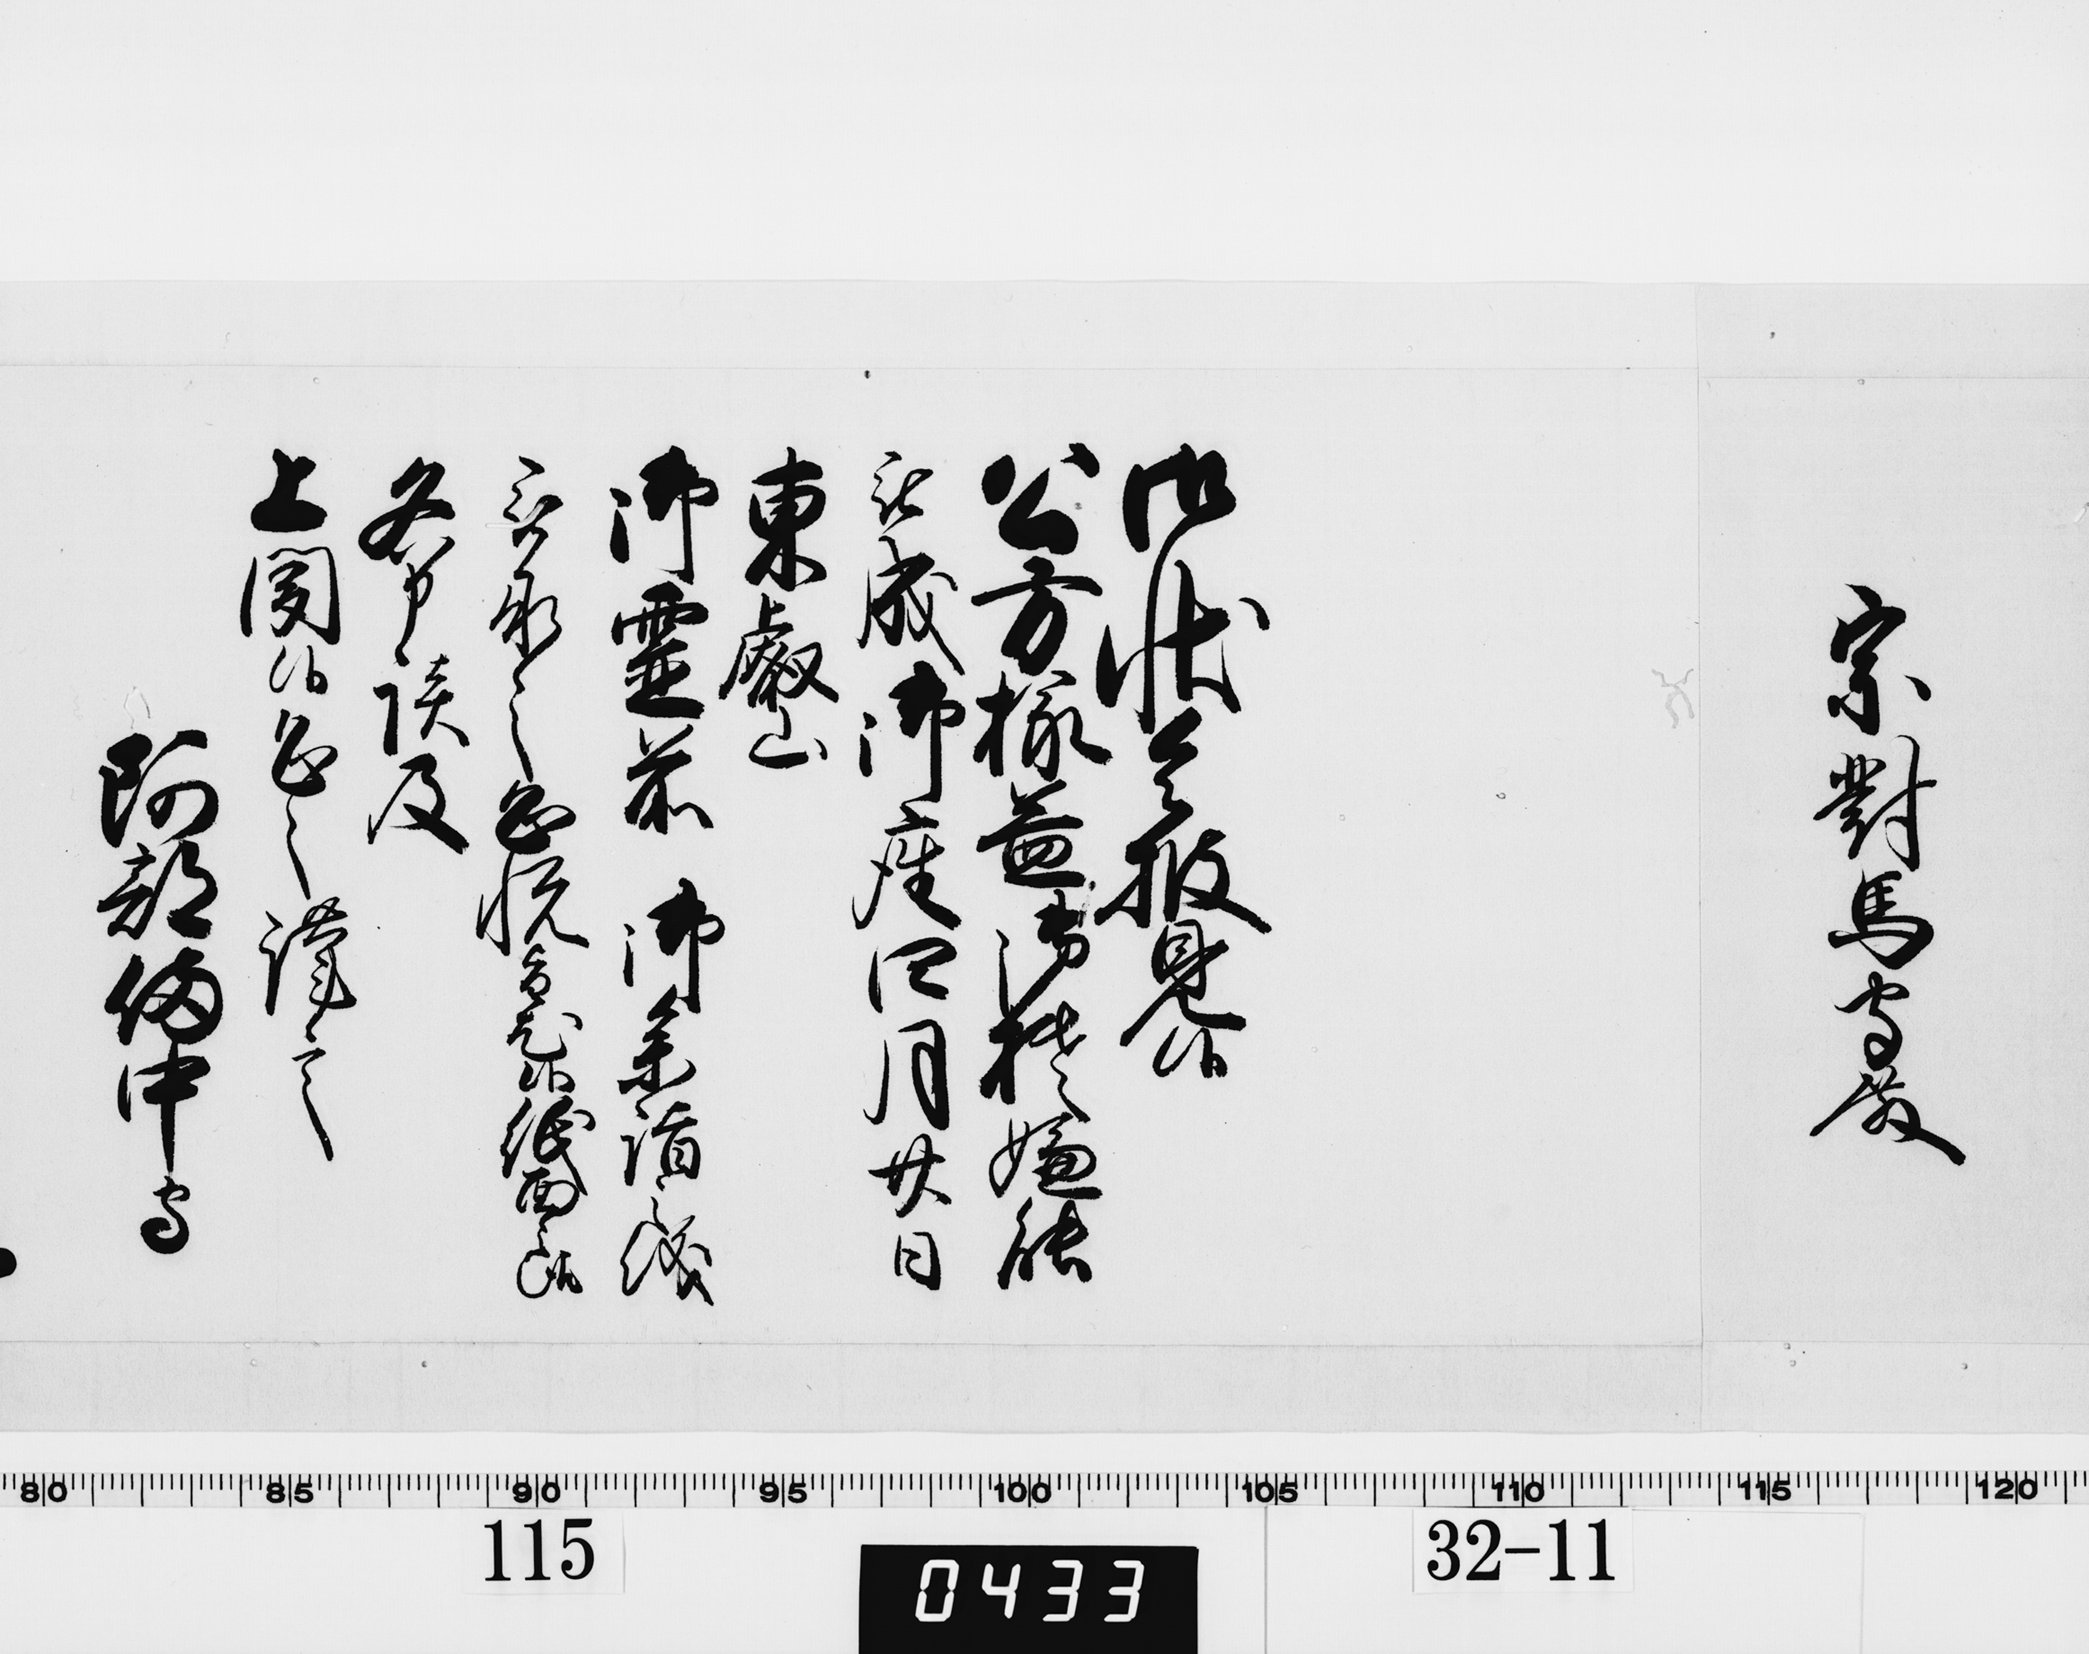 宗對馬守殿
御状令披見候
公方様益御機嫌能
被成御座四月廿日
東叡山
御霊前 御参詣之儀
被承之恐悦旨尤候紙面之趣
各申談及
上聞候恐々謹言
阿部備中守
80 85 90 95 100 105 110 115 120
115
0433
32-11